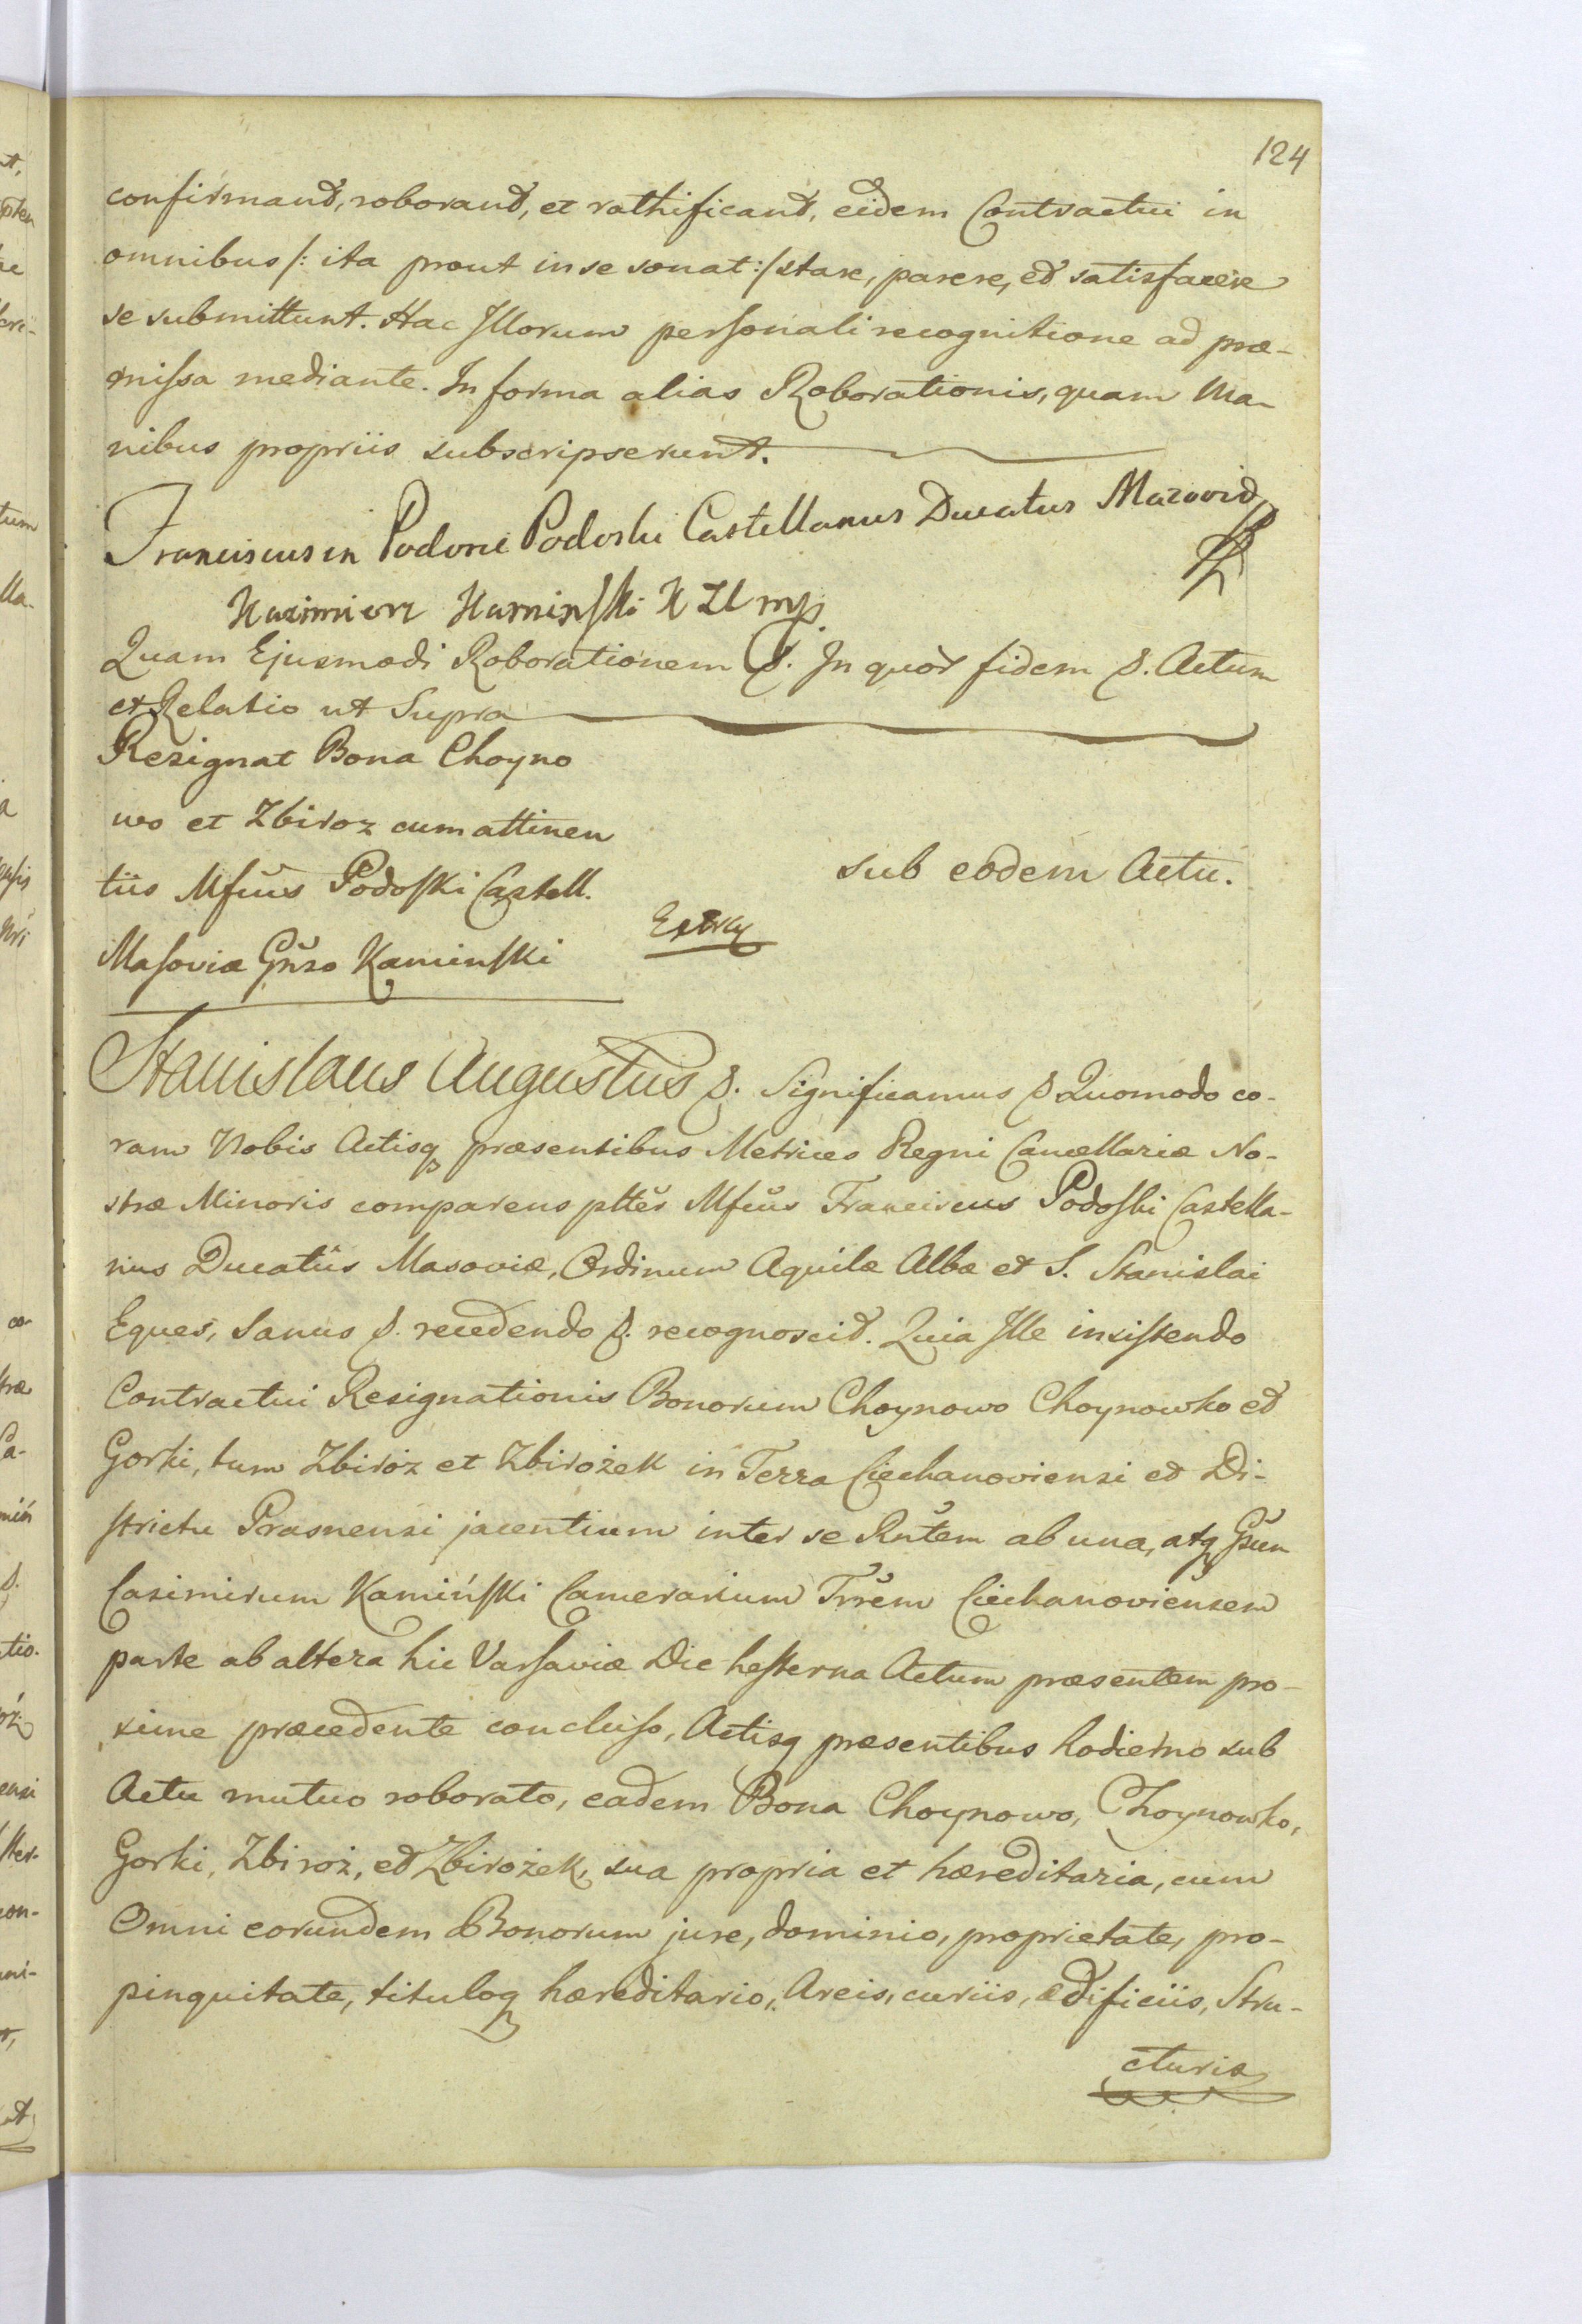 124
confirmand, roborand, et rathificand, eidem Contractui in
omnibus /: ita prout in se sonat :/ stare, parere, et satisfacere
se submittunt. Hac Illorum personali recognitione ad præ-
missa mediante. In forma alias Roborationis, quam Ma-
nibus propriis subscripserunt.
Franciscus in Podoski Castellanus Ducatus Mazovi
Kazimierz Kaminski K Z C mp.
Quam Ejusmodi Roborationem &. In quor fidem &. Actum
et Relatio ut Supra
Resignat Bona Choyno
wo et Zbiroz cum attinen
tiis Mfcus Podoski Castell.
sub eodem Actu.
Masoviæ Gnso Kaminski
Stanislaus Augustus &. Significamus & Quomodo co-
ram Nobis Actisq præsentibus Metrices Regni Cancellariæ No-
stræ Minoris comparens pltter Mfcus Franciscus Podoski Castella-
nus Ducatus Masoviæ, Ordinum Aquilæ Albæ et S. Stanislai
Eques, Sanus &. recedendo &. recognoscit. Quia Ille insistendo
Contractui Resignationis Bonorum Choynowo Choynowko et
Gorki, tum Zbiroż et Zbirożek in Terra Ciechanoviensi et Di-
strictu Prasnensi jacentium inter se Rntem ab una, atq Gsum
Casimirum Kamiński Camerarium Trrem Ciechanoviensem
parte ab altera hic Varsaviæ Die hesterna Actum præsentem pro-
xime præcedente concluso, Actisq præsentibus hodierno sub
Actu mutuo roborato, eadem Bona Choynowo, Choynowko,
Gorki, Zbiroż, et Zbirożek, sua propria et hæreditaria, cum
Omni eorundem Bonorum jure, dominio, proprietate, pro-
pinquitate, tituloq hæreditario, Areis, curiis, ædificiis, Stru-
cturis